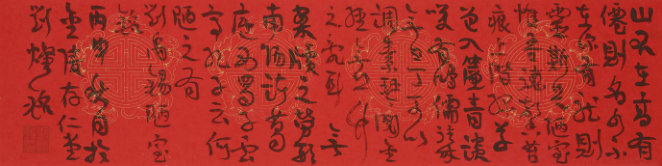 山不在高有
僊則名水不
在深有龍則
靈斯是陋室
惟吾德馨苔
痕上階綠草
色入簾青談
笑有鴻儒往來
無白丁可以
調素琴閱金
經無絲竹
之亂耳無
案牘之勞形
南陽諸葛
廬西蜀子雲
亭孔子云何
陋之有
劉禹錫陋室
銘
丙申秋月於
金陵存仁堂
劉燦銘